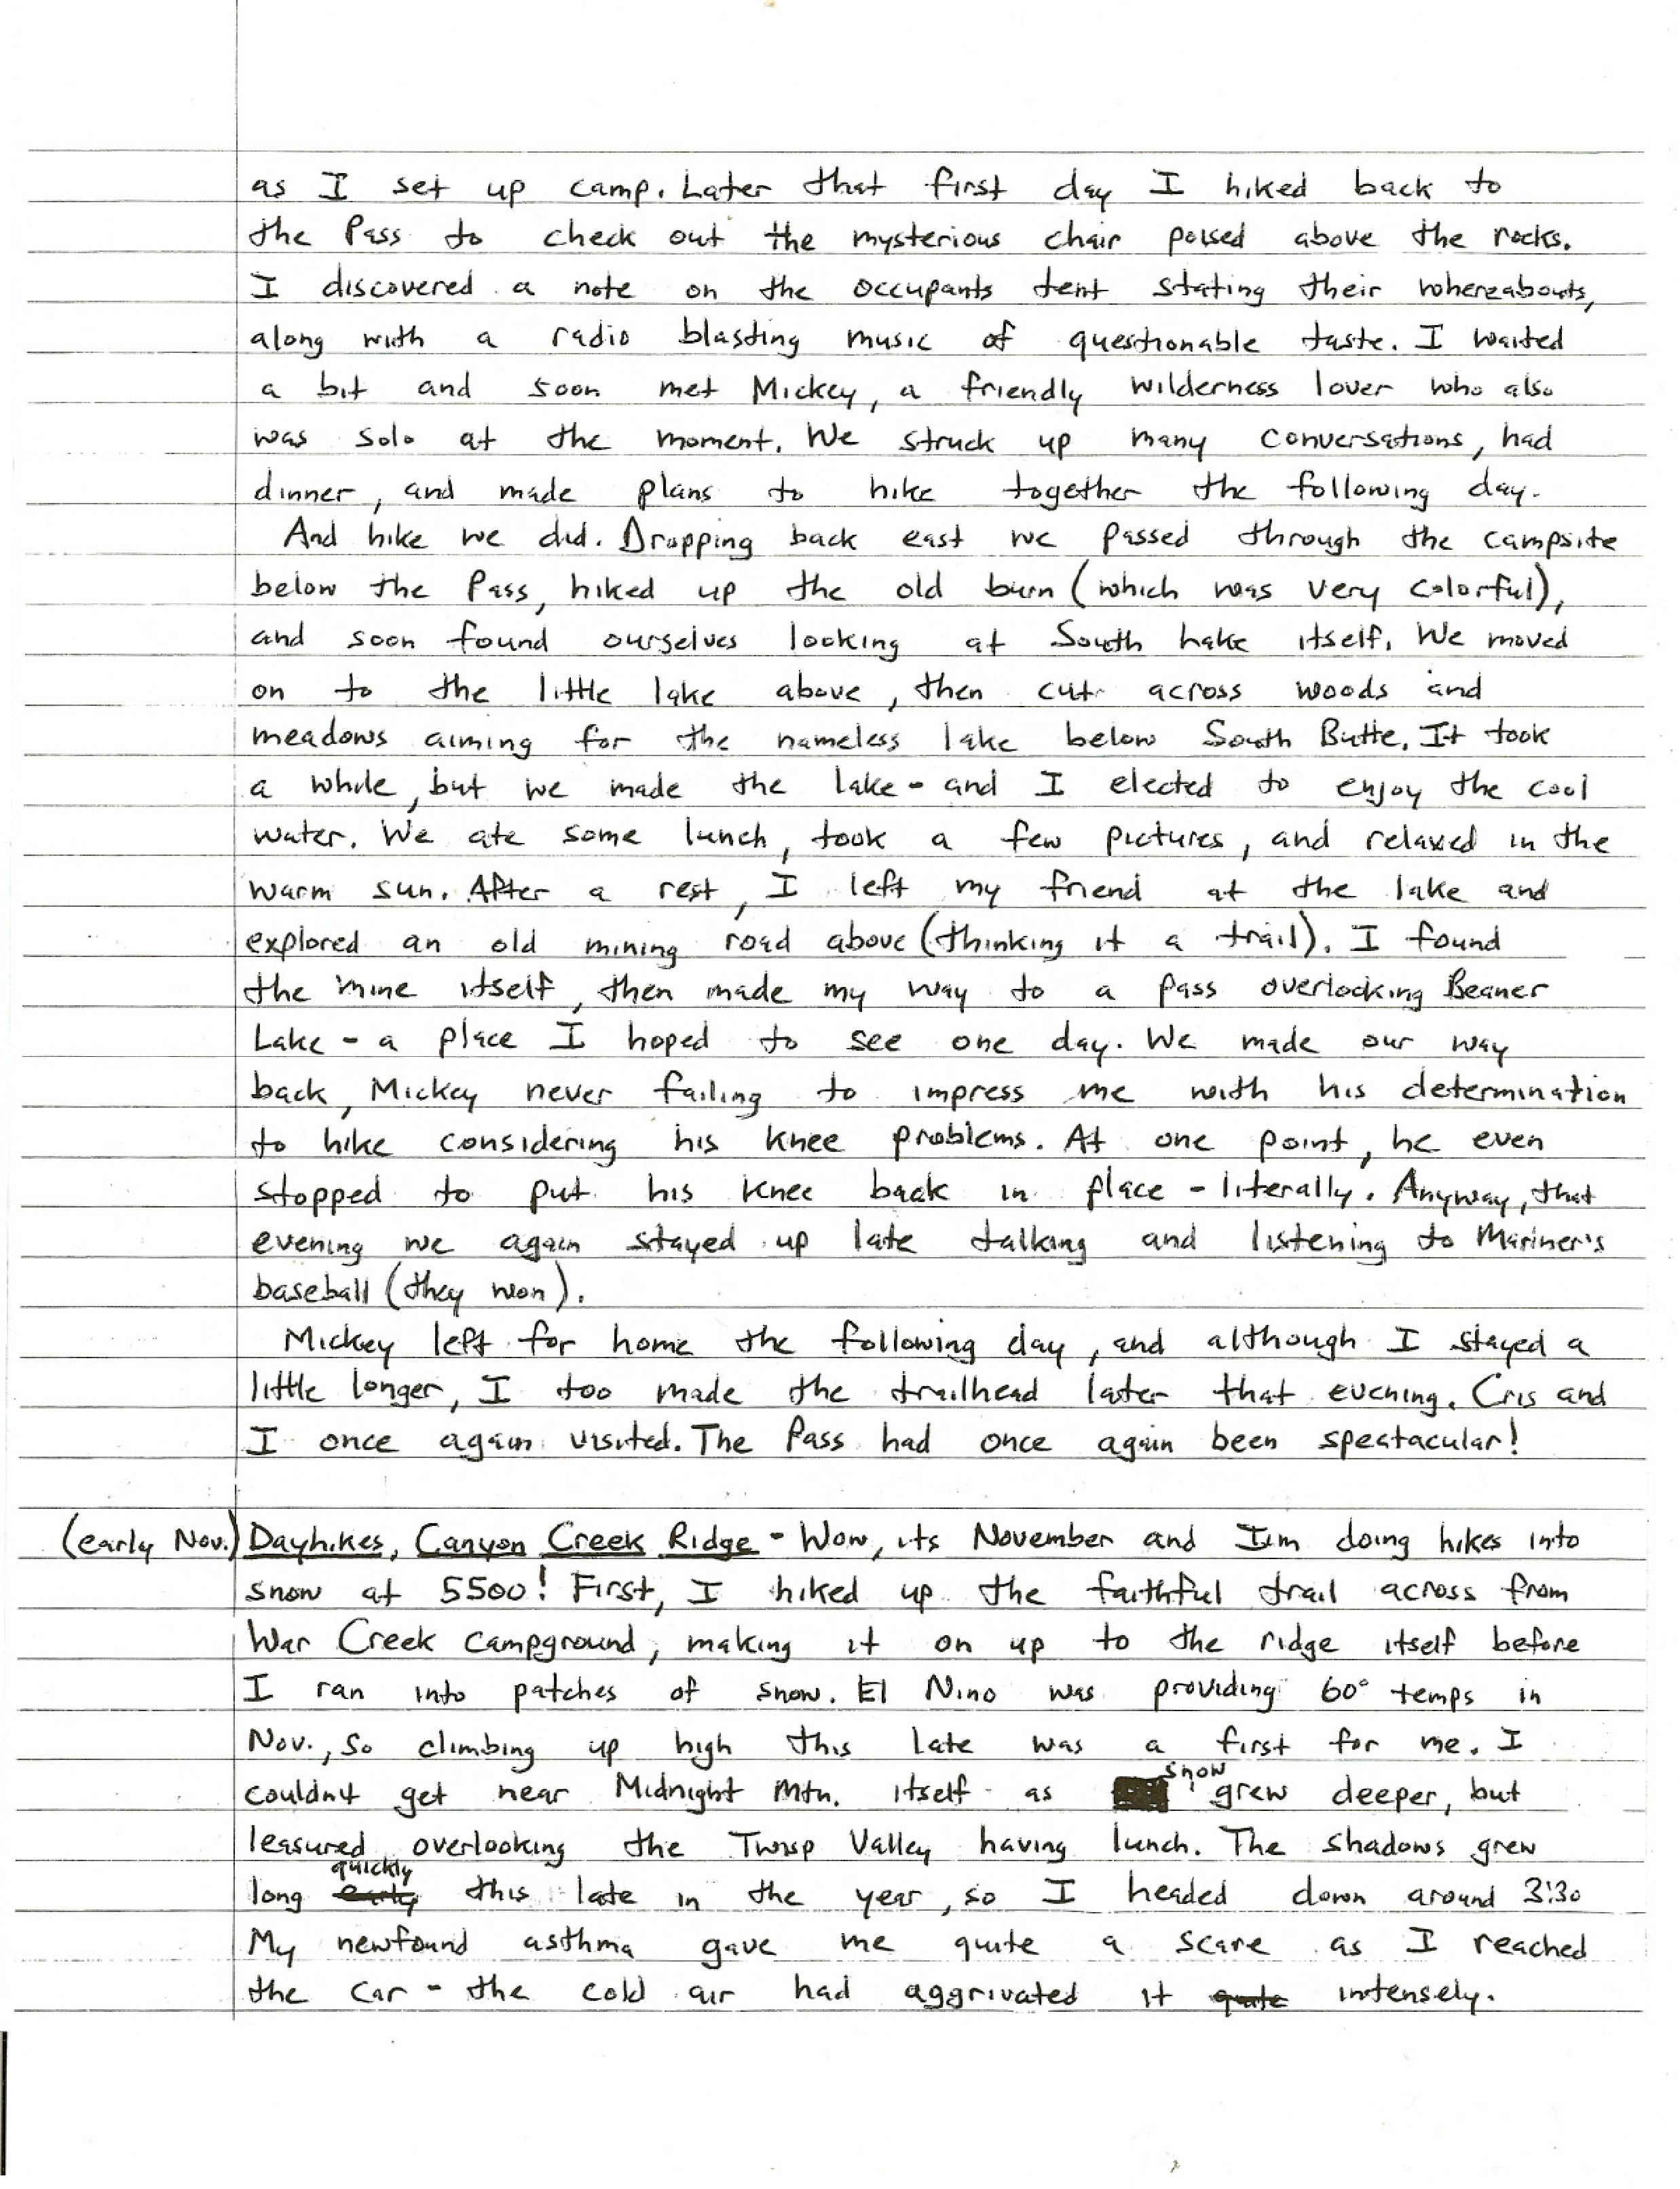 as I set up camp. Later that first day I hiked back to
the Pass to check out the mysterious chair poised above the rocks.
I discovered a note on the occupants tent stating their whereabouts,
along with a radio blasting music of questionable taste. I waited
a bit and soon met Mickey, a friendly wilderness lover who also
was solo at the moment. We struck up many conversations, had
dinner, and made plans to hike together the following day.
And hike we did. Dropping back east we passed through the campsite
below the Pass, hiked up the old burn (which was very colorful),
and soon found ourselves looking at South Lake itself. We moved
on to the little lake above, then cut across woods and
meadows aiming for the nameless lake below South Butte. It took
a while, but we made the lake - and I elected to enjoy the cool
water. We ate some lunch, took a few pictures, and relaxed in the
warm sun. After a rest, I left my friend at the lake and
explored an old mining road above (thinking it a trail). I found
the mine itself, then made my way to a pass overlooking Beaner
Lake - a place I hoped to see one day. We made our way
back, Mickey never failing to impress me with his determination
to hike considering his knee problems. At one point, he even
stopped to put his knee back in place - literally. Anyway, that
evening we again stayed up late talking and listening to Mariner's
baseball (they won).
Mickey left for home the following day, and although I stayed a
little longer, I too made the trailhead later that evening. Cris and
I once again visited. The Pass had once again been spectacular!
(early Nov.) Dayhikes, Canyon Creek Ridge - Wow, its November and I'm doing hikes into
snow at 5500! First, I hiked up the faithful trail across from
War Creek campground, making it on up to the ridge itself before
I ran into patches of snow. El Nino was providing 60° temps in
Nov., so climbing up high this late was a first for me. I
couldn't get near Midnight Mtn. itself as snow grew deeper, but
leasured overlooking the Twisp Valley having lunch. The shadows grew
long quickly this late in the year, so I headed down around 3:30
My newfound asthma gave me quite a scare as I reached
the car - the cold air had aggrivated it intensely.